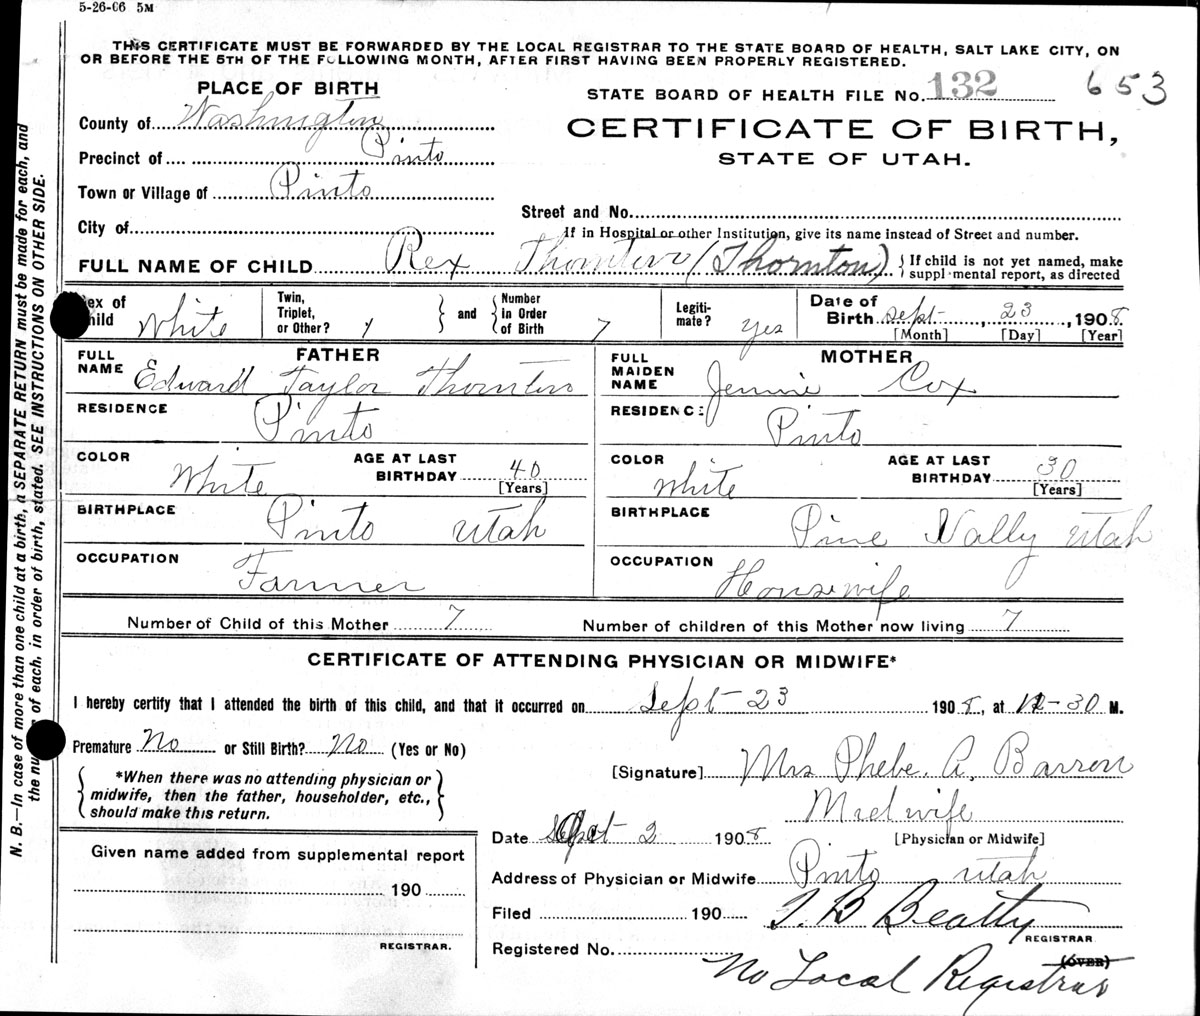 5-26-06 5M
THIS CERTIFICATE MUST BE FORWARDED BY THE LOCAL REGISTRAR TO THE STATE BOARD OF HEALTH, SALT LAKE CITY, ON
OR BEFORE THE 5TH OF THE FOLLOWING MONTH, AFTER FIRST HAVING BEEN PROPERLY REGISTERED.
PLACE OF BIRTH
STATE BOARD OF HEALTH FILE No. 132 653
County of Washington
CERTIFICATE OF BIRTH,
STATE OF UTAH.
Precinct of Pinto
Town or Village of Pinto
Street and No.
City of
If in Hospital or other Institution, give its name instead of Street and number.
FULL NAME OF CHILD Rex Thornton (Thornton) If child is not yet named, make
supplemental report, as directed
Sex of
Child White
Twin,
Triplet,
or Other?
and
Number
in Order
of Birth 7
Legiti-
mate? Yes
Date of
Birth Sept 23, 1908
[Month] [Day] [Year]
FATHER
FULL
NAME Edward Taylor Thornton
RESIDENCE Pinto
COLOR White AGE AT LAST
BIRTHDAY 40
[Years]
BIRTHPLACE Pinto Utah
OCCUPATION Farmer
MOTHER
FULL
MAIDEN
NAME Jennie Cox
RESIDENCE Pinto
COLOR White AGE AT LAST
BIRTHDAY 30
[Years]
BIRTHPLACE Pine Vally Utah
OCCUPATION Housewife
Number of Child of this Mother 7 Number of children of this Mother now living 7
CERTIFICATE OF ATTENDING PHYSICIAN OR MIDWIFE*
I hereby certify that I attended the birth of this child, and that it occurred on Sept 23 1908, at 12-30 M.
Premature No or Still Birth? No (Yes or No)
*When there was no attending physician or
midwife, then the father, householder, etc.,
should make this return.
[Signature] Mrs Phebe. A. Barron
Midwife
[Physician or Midwife]
Date Oct 2 1908
Address of Physician or Midwife Pinto Utah
Given name added from supplemental report
190
REGISTRAR.
Filed 190 T. B Beatty
REGISTRAR
Registered No.
(OVER)
No Local Registrar
N. B.—In case of more than one child at a birth, a SEPARATE RETURN must be made for each, and
the nu of each, in order of birth, stated. SEE INSTRUCTIONS ON OTHER SIDE.